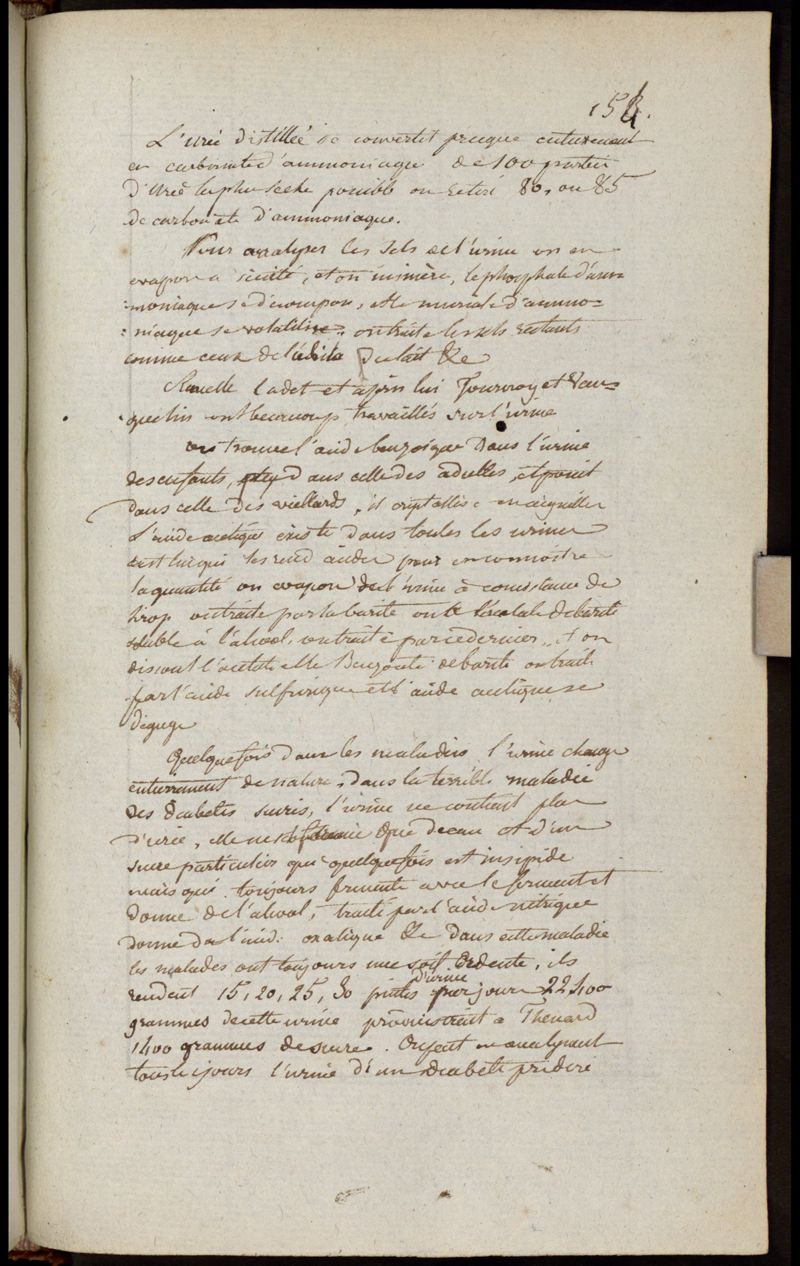 154.
L'urée distillée se convertit presque entierement
en carbonate d'ammoniaque de 100 parties
d'urée la plus seche possible on retire 80, ou 85
de carbonate d'ammoniaque.
Pour analyser les sels de l'urine on en
evapore a siccité, et on incinère, le phosphate d'am-
:moniaque se décompose, et le muriate d'ammo=
:niaque se volatilise. on traite les sels restants
comme ceux de du lait &c
Rouelle Cadet et après lui Fourcroy et Vau=
quelin ont beaucoup travaillés sur l'urine
on trouve l'acide benzoique dans l'urine
des enfants, dans celle des adultes, et point
dans celle des viellards, il crystallise en aiguilles
L'acide acetique existe dans toutes les urines
c'est lui qui les rend acides pour en connoitre
la quantité on evapore de l'urine à consistance de
sirop on traite par la barite on a l'acetate de barite
soluble à l'alcool, on traite par ce dernier, et on
dissout l'acetate et le Benzoate de barite on traite
par l'acide sulfurique et l'acide acetique se
degage
Quelquefois dans les maladies l'urine change
entierement de nature, dans la terrible maladie
des diabetes sucrés, l'urine ne contient plus
d'urée, elle n'est formée que d'eau et d'un
sucre particulier qui quelquefois est insipide
mais qui toujours fermente avec le ferment et
donne de l'alcool, traité par l'acide nitrique
donne de l'acide oxalique &c dans cette maladie
les malades ont toujours une soif ardente, ils
rendent 15, 20, 25, 30 pintes d'urine par jour 22400
grammes de cette urine a Thenard
1400 grammes de sucre. On peut en analysant
tous les jours l'urine d'un diabete predire